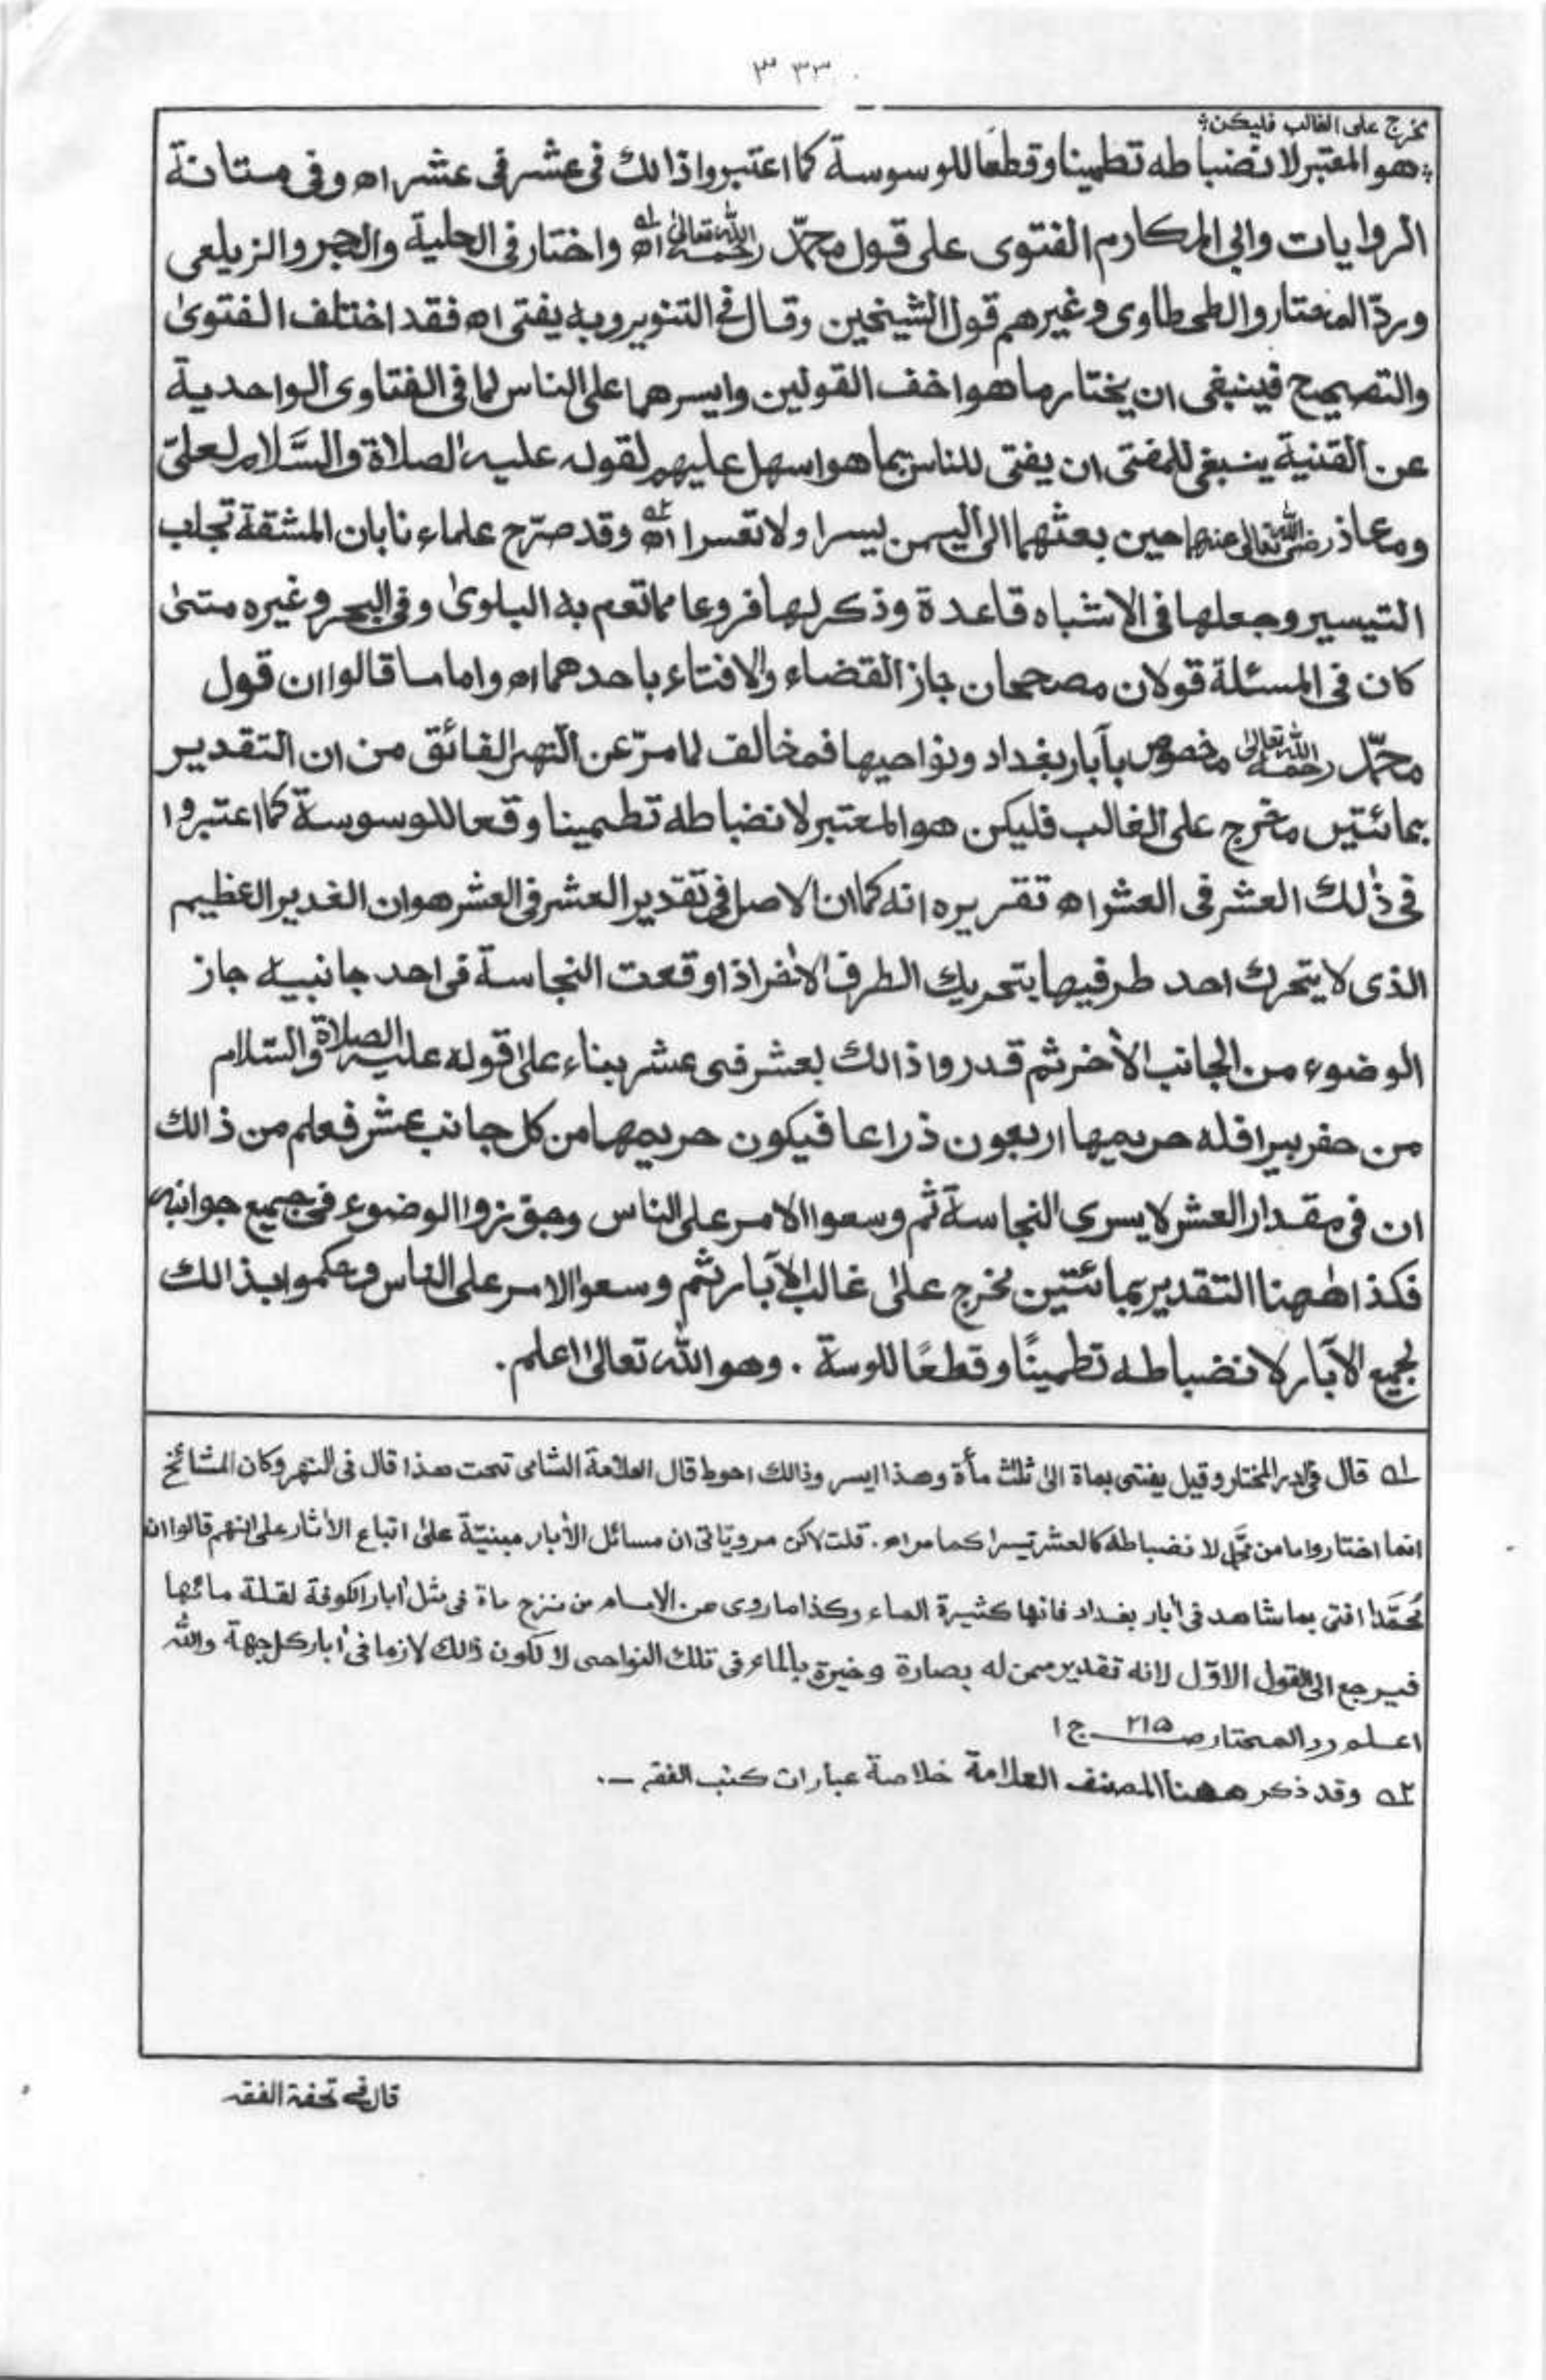 ٣٣٣
مخرج على الغالب فليكن؛
؛هو المعتبر لانضباطه تطمينا وقطعًا للوسوسة كما اعتبروا ذالك فى عشر فى عشر اھ وفى متانة
الروايات وابى المكارم الفتوى على قول محمّد رحمه الله تعالىٰ اھ ١ واختار فى الحلية والبحر والزيلعى
وردّ المختار والطحطاوى وغيرهم قول الشيخين وقال فى التنوير وبه يفتى اھ فقد اختلف الفتوىٰ
والتصحيح فينبغى ان يختار ما هو اخف القولين وايسرهما على الناس لما فى الفتاوى الواحدية
عن القنية ينبغى للمفتى ان يفتى للناس بما هو اسهل عليهم لقوله عليه الصلاة والسَّلام لعلىّ
ومعاذ رضى الله تعالى عنهما حين بعثهما الى اليمن يسرا ولا تعسرا اھ ٢ وقد صرّح علماءنا بان المشقة تجلب
التيسير وجعلها فى الاشباه قاعدة وذكر لها فروعا مما تعم به البلوىٰ وفى البحر وغيره متىٰ
كان فى المسئلة قولان مصححان جاز القضاء والافتاء باحدهما اھ واما ما قالوا ان قول
محمّد رحمه الله تعالىٰ مخصوص بآبار بغداد ونواحيها فمخالف لما مرّ عن النهر الفائق من ان التقدير
بمائتين مخرج على الغالب فليكن هو المعتبر لانضباطه تطمينا وقعا للوسوسة كما اعتبروا
فى ذٰلك العشر فى العشر اھ تقريره انه كما ان الاصل فى تقدير العشر فى العشر هو ان الغدير العظيم
الذى لا يتحرك احد طرفيها بتحريك الطرف الاٰخر اذا وقعت النجاسة فى احد جانبيه جاز
الوضوء من الجانب الاٰخر ثم قدروا ذالك بعشر فى عشر بناء علىٰ قوله عليه الصلاة والسّلام
من حفر بيرا فله حريمها اربعون ذراعا فيكون حريمها من كل جانب عشر فعلم من ذالك
ان فى مقدار العشر لا يسرى النجاسة ثم وسعوا الامر على الناس وجوّزوا الوضوء فى جميع جوانبه
فكذا هٰهنا التقدير بمائتين مخرج علىٰ غالب الآبار ثم وسعوا الامر على الناس وحكموا بذالك
لجميع الآبار لانضباطه تطمينًا وقطعًا للوسة . وهو الله تعالىٰ اعلم .
١ قال فى در المختار وقيل يفتى بماة الىٰ ثلٰث مأة وهذا ايسر وذالك احوط قال العلامة الشامى تحت هذا قال فى النهر وكان المشائخ
انما اختاروا ما من محمّد لانضباطه كالعشر تيسرا كما مر اھ . قلت لاكن مر وياتى ان مسائل الاٰبار مبنيّة علىٰ اتباع الاٰثار على انهم قالوا ان
مُحمَّدا افتى بما شاهد فى اٰبار بغداد فانها كثيرة الماء وكذا ما روى عن الامام من نزح ماة فى مثل اٰبار الكوفة لقلة مائها
فيرجع الى القول الاوّل لانه تقدير ممن له بصارة وخبرة بالماء فى تلك النواحى لا لكون ذالك لازما فى اٰبار كل جهة والله
اعلم رد المحتار صـ ٢١٥ ج ١
٢ وقد ذكر ههنا المصنف العلامة خلاصة عبارات كتب الفقه .
قال فى تحفة الفقه